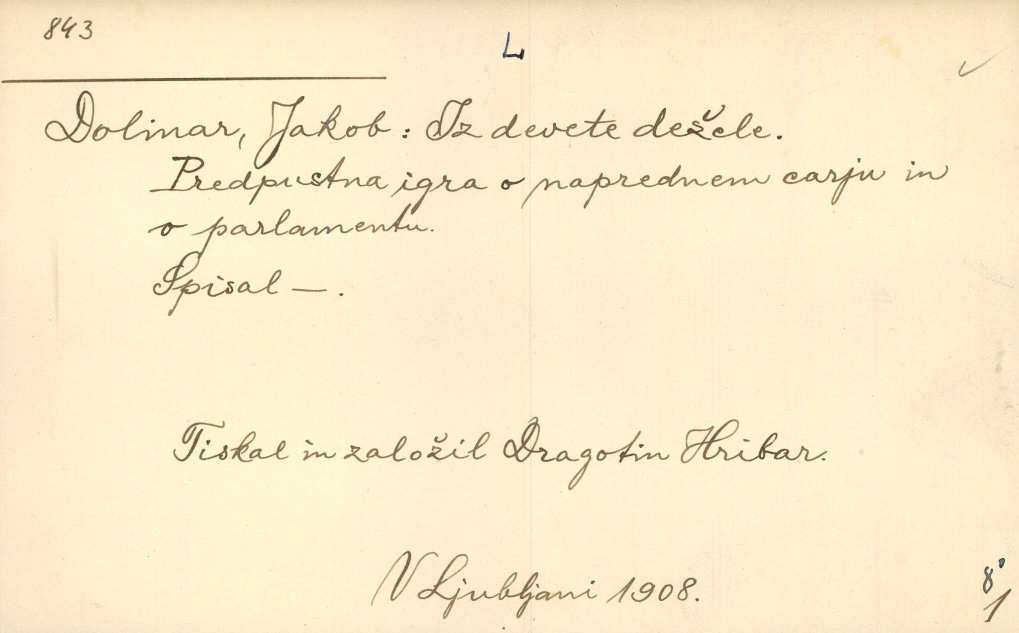 843
L
Dolinar, Jakob: Iz devete dežele.
Predpustna igra o naprednem carju in
o parlamentu.
Spisal —.
Tiskal in založil Dragotin Hribar.
V Ljubljani 1908.
8°
1